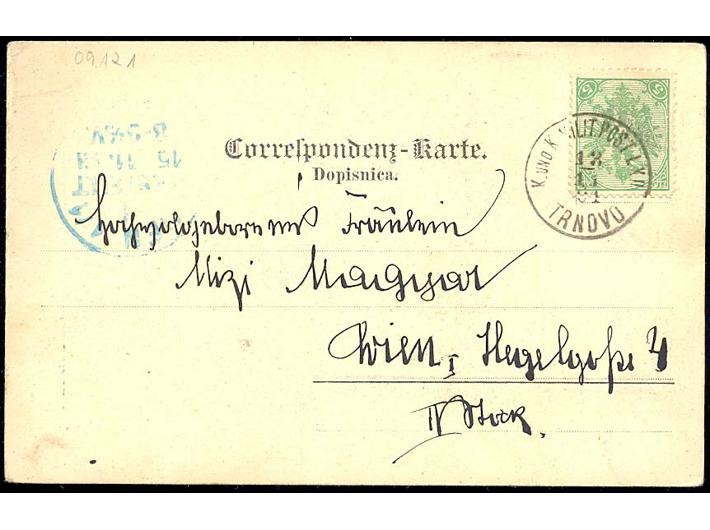 09.121
Correspondenz-Karte.
Dopisnica.
5 5
K. UND K. MILIT. POST
TRNOVO
WIEN
15
8-9
Hochwolgeborenes Fräulein
Mizi Magyar
Wien, I Hegelgaße 4
IV Stock.